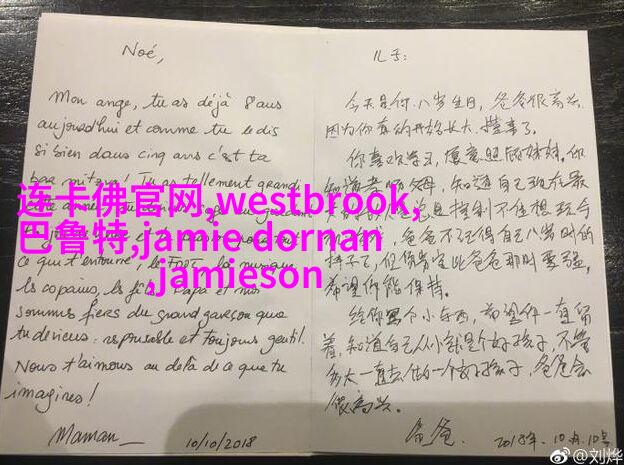 Noé,
Mon ange, tu as déjà 8 ans
aujourd'hui et comme tu le dis
si bien dans cinq ans c'est ta
bar mitzva! Tu as tellement grandi
ce qui t'entoure, le FOOT, la musique
les copains, les fêtes. Papa et moi
sommes fiers du grand garçon que
tu deviens: responsable et toujours gentil.
Nous t'aimons au delà de ce que tu
imagines!
Maman
10/10/2018
儿子:
今天是你八岁生日,爸爸很高兴
因为你真的开始长大,懂事了。
你喜欢学习,愿意照顾妹妹。你
知道孝顺父母,知道自己现在最
总是控制不住想玩
,爸爸不记得自己八岁时的
样子了,但你肯定比爸爸那时要强,
希望你能保持。
给你写个小东西,希望你一直留
着,知道自己从小就是个好孩子,不管
多大一直去做一个好孩子,爸爸会
很高兴。
爸爸
2018年10月10号
连卡佛官网,westbrook,
巴鲁特,jamie dornan
,jamieson
@刘烨